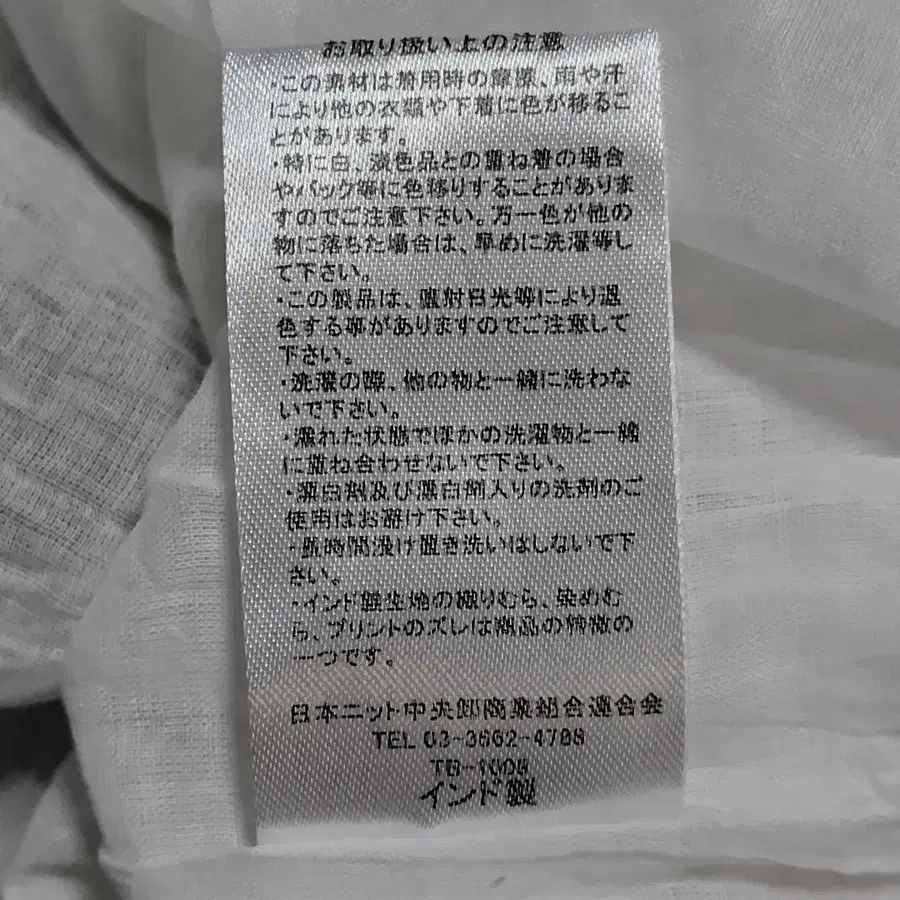 お取り扱い上の注意
・この素材は着用時の摩擦、雨や汗
により他の衣類や下着に色が移るこ
とがあります。
・特に白、淡色品との重ね着の場合
やバック等に色移りすることがありま
すのでご注意下さい。万一色が他の
物に落ちた場合は、早めに洗濯等し
て下さい。
・この製品は、直射日光等により退
色する事がありますのでご注意して
下さい。
・洗濯の際、他の物と一緒に洗わな
いで下さい。
・濡れた状態でほかの洗濯物と一緒
に重ね合わせないで下さい。
・漂白剤及び漂白剤入りの洗剤のご
使用はお避け下さい。
・長時間浸け置き洗いはしないで下
さい。
・インド製生地の織りむら、染めむ
ら、プリントのズレは商品の特徴の
一つです。
日本ニット中央卸商業組合連合会
TEL 03-3662-4788
TB-1009
インド製